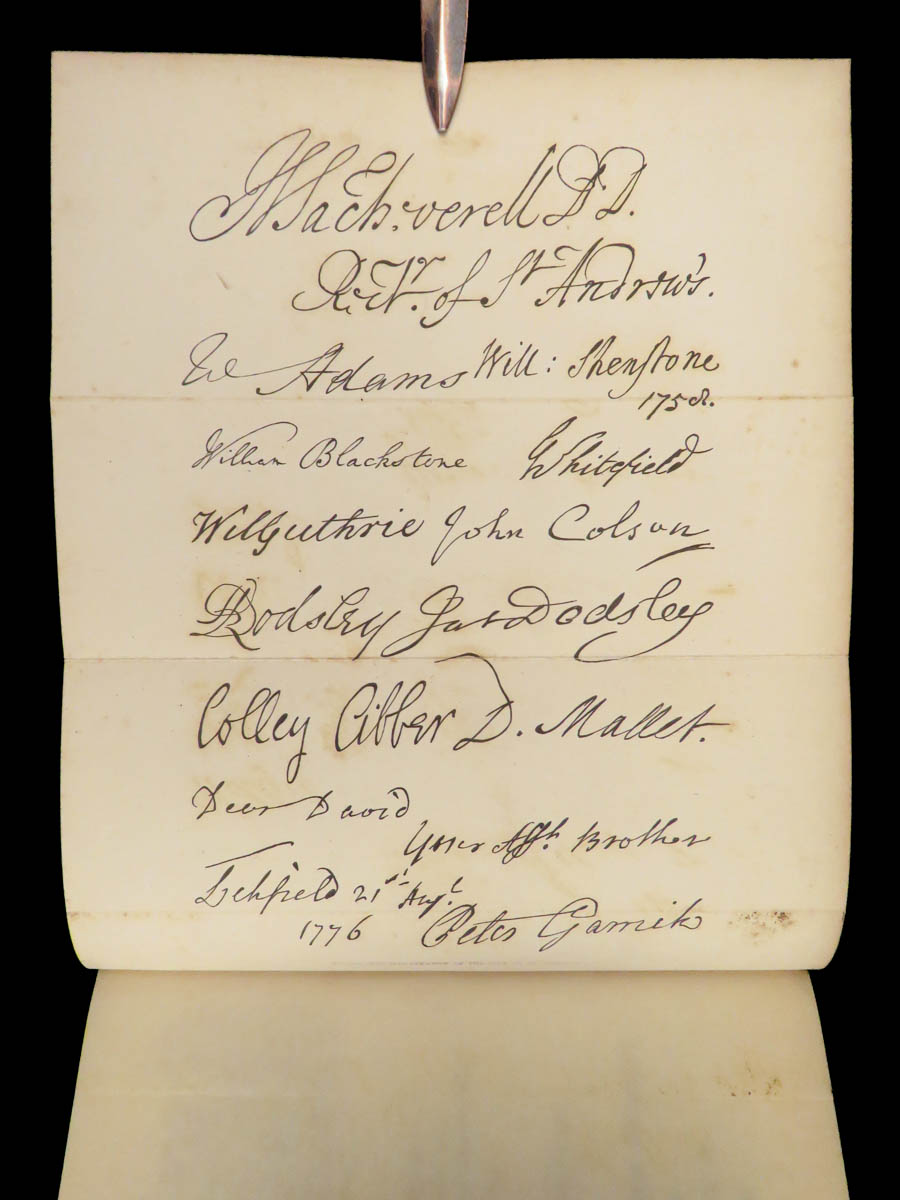 H Sacheverell D.D.
Rectr. of St Andrew's.
W Adams Will: Shenstone
1758.
William Blackstone G Whitefield
Wil Guthrie John Colson
R Dodsley Jas Dodsley
Colley Cibber D. Mallet.
Dear David
Your Afft. Brother
Lichfield 21st Augt.
1776 Peter Garrick